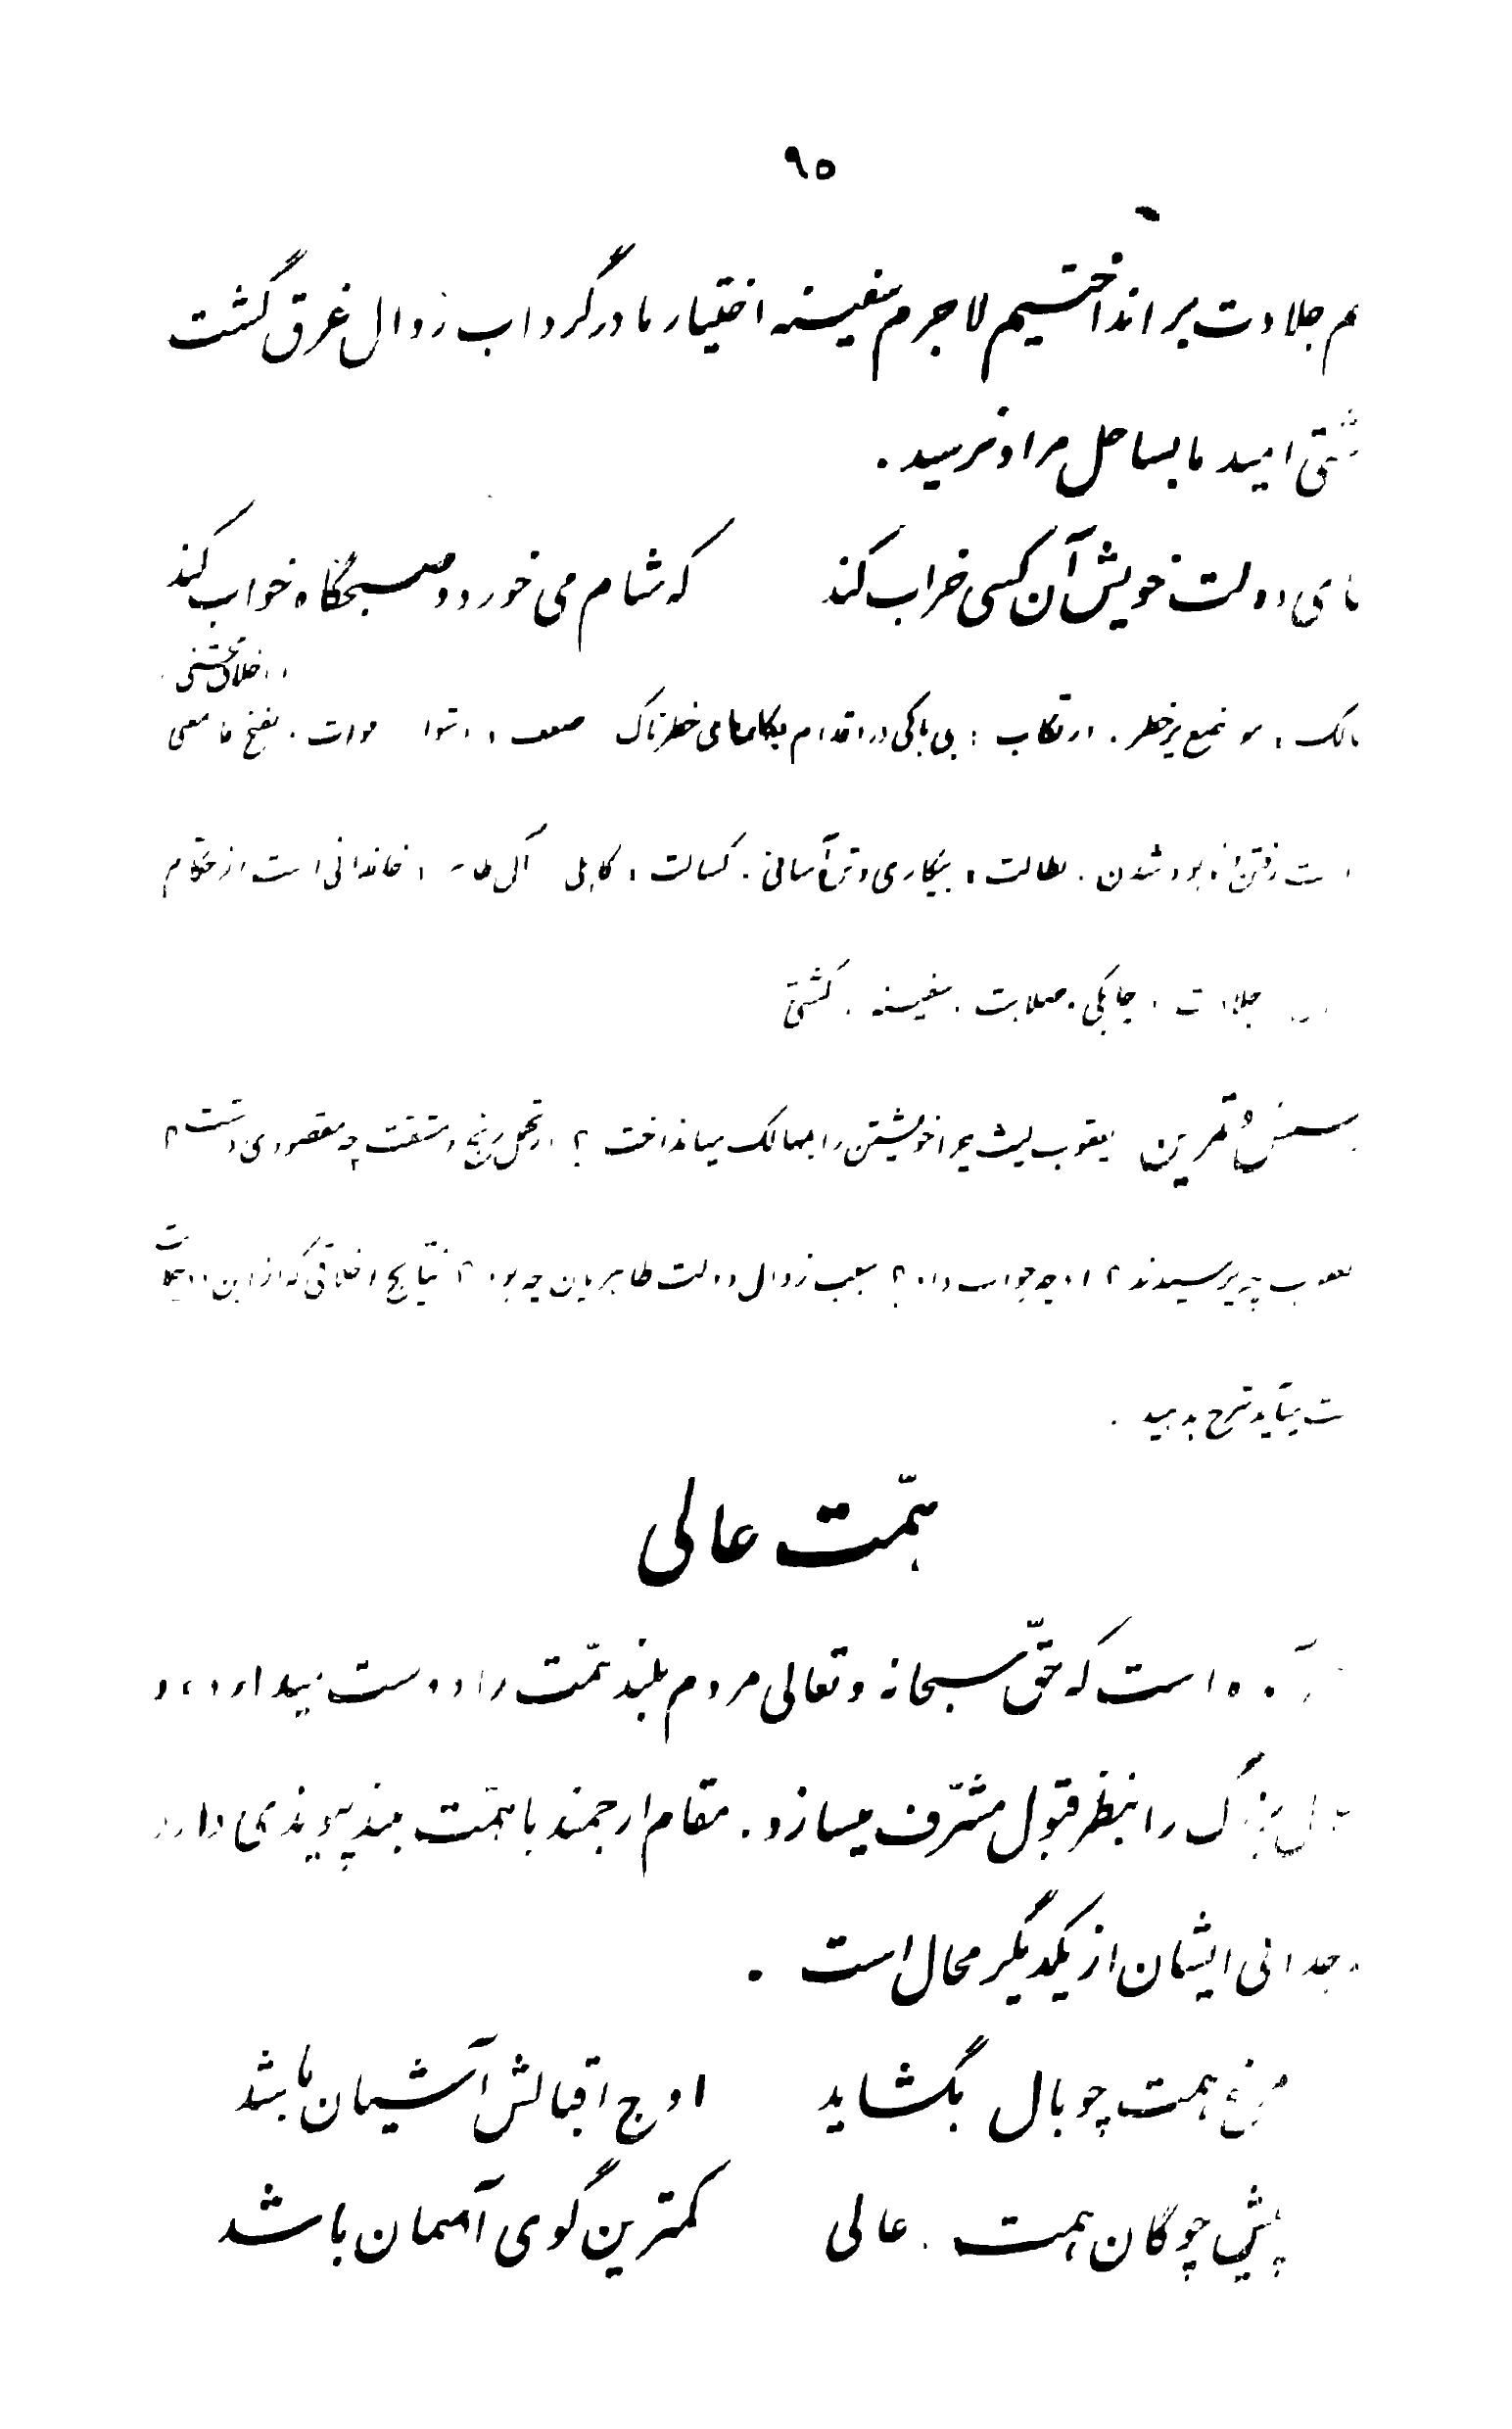 ٩٥
جلادت بر انداختیم لاجرم سفینه اختیار ما در گرداب زوال غرق گشت
امید ما بساحل مراد نرسید .
دولت خویش آن کسی خراب کند که شام می خورد و صبحگاه خواب کند
اخلاق محسنی
موضع پرخطر . ارتکاب : بی باکی در اقدام بکارهای خطرناک
رفتن نابود شدن . بطالت : بیکاری و تن آسانی . کسالت : کاهلی آل طاهر : خاندانی است از حکام
جلادت : چابکی ، صلابت . سفینه : کشتی
پرسش و تمرین یعقوب لیث چرا خویشتن را بمهالک میانداخت ؟ از تحمل رنج و مشقت چه مقصودی داشت ؟
چه پرسیدند ؟ او چه جواب داد ؟ سبب زوال دولت طاهریان چه بود ؟ نتایج اخلاقی که از این حکایت
شرح بدهید .
همّت عالی
است که حقّ سبحانه و تعالی مردم بلند همّت را دوست میدارد ، و
بزرگ را بنظر قبول مشرّف میسازد . مقام ارجمند با همّت بلند پیوندی دارد
جدائی ایشان از یکدیگر محال است .
مرغ همت چو بال بگشاید اوج اقبالش آشیان باشد
پیش چوگان همت عالی کمترین گوی آسمان باشد